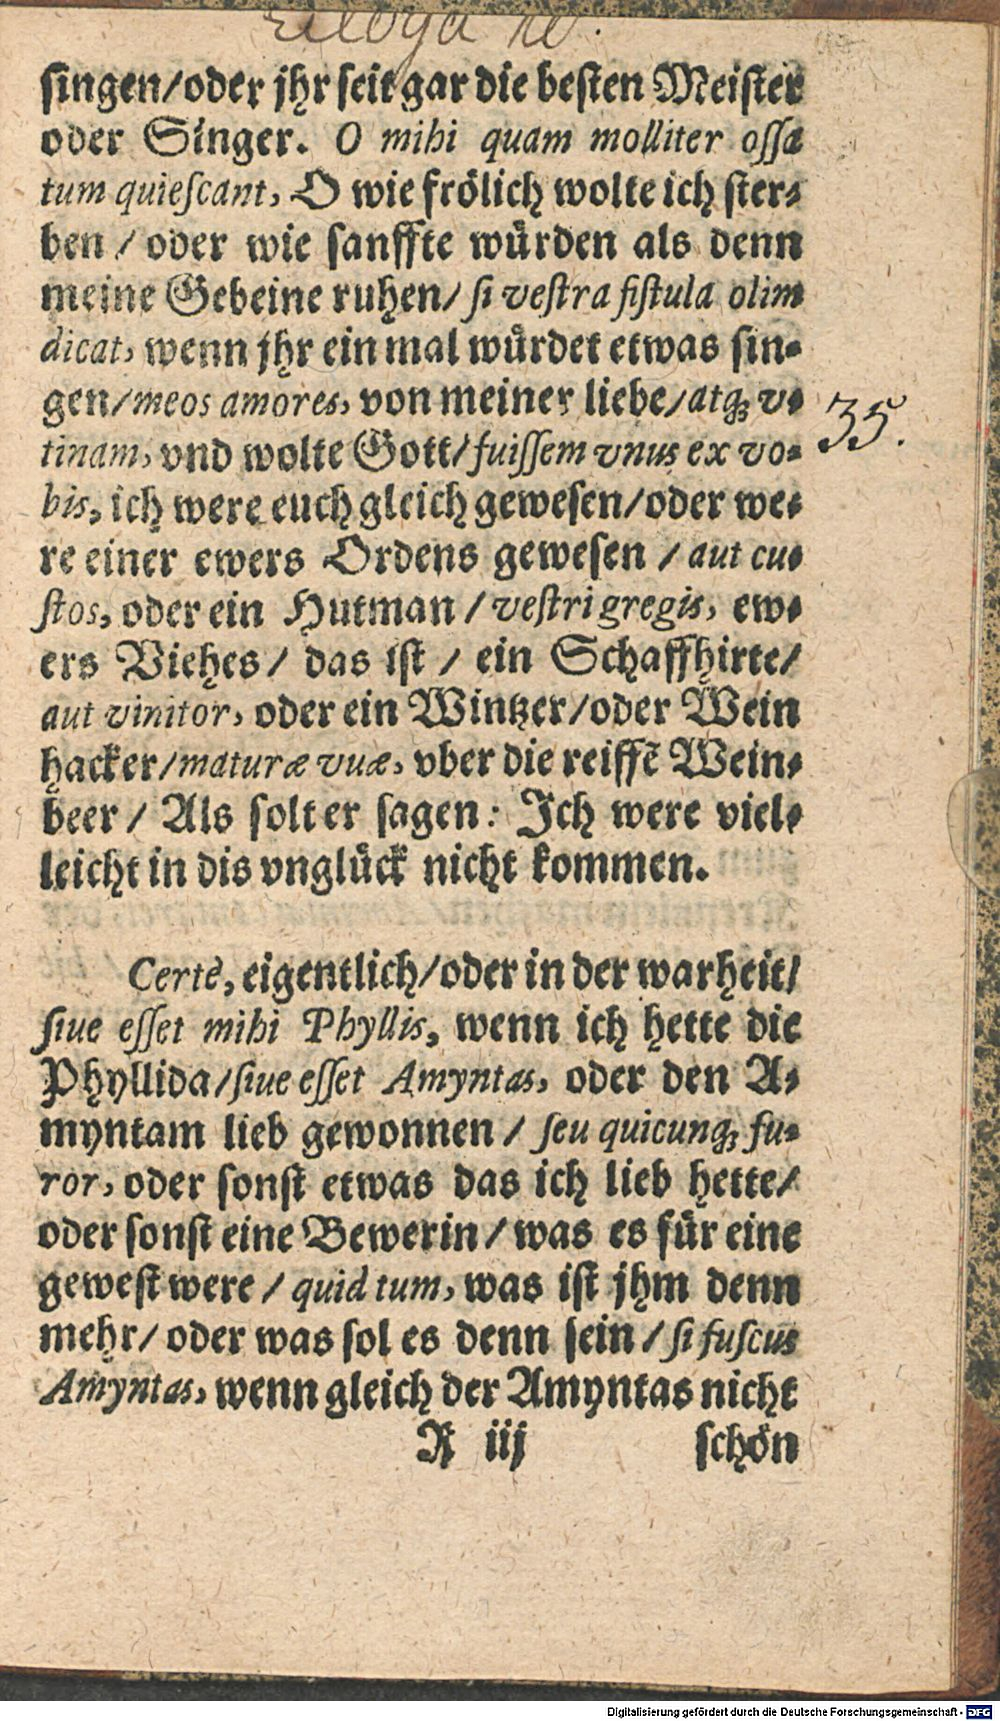 Ecloga 10.
singen/oder jhr seit gar die besten Meister
oder Singer. O mihi quam molliter ossa
tum quiescant, O wie frölich wolte ich ster-
ben / oder wie sanffte würden als denn
meine Gebeine ruhen/ si vestra fistula olim
dicat, wenn jhr ein mal würdet etwas sin-
gen/meos amores, von meiner liebe/atq; v-
35.
tinam, vnd wolte Gott/fuissem vnus ex vo-
bis, ich were euch gleich gewesen/oder we-
re einer ewers Ordens gewesen / aut cu-
stos, oder ein Hutman / vestri gregis, ew-
ers Viehes/ das ist / ein Schaffhirte/
aut vinitor, oder ein Wintzer/oder Wein
hacker/maturæ vuæ, vber die reiffē Wein-
beer/ Als solt er sagen: Ich were viel-
leicht in dis vnglück nicht kommen.
Certè, eigentlich/oder in der warheit/
siue esset mihi Phyllis, wenn ich hette die
Phyllida/siue esset Amyntas, oder den A-
myntam lieb gewonnen / seu quicunq; fu-
ror, oder sonst etwas das ich lieb hette/
oder sonst eine Bewerin/ was es für eine
gewest were / quid tum, was ist jhm denn
mehr/ oder was sol es denn sein / si fuscus
Amyntas, wenn gleich der Amyntas nicht
R iij schön
Digitalisierung gefördert durch die Deutsche Forschungsgemeinschaft - DFG